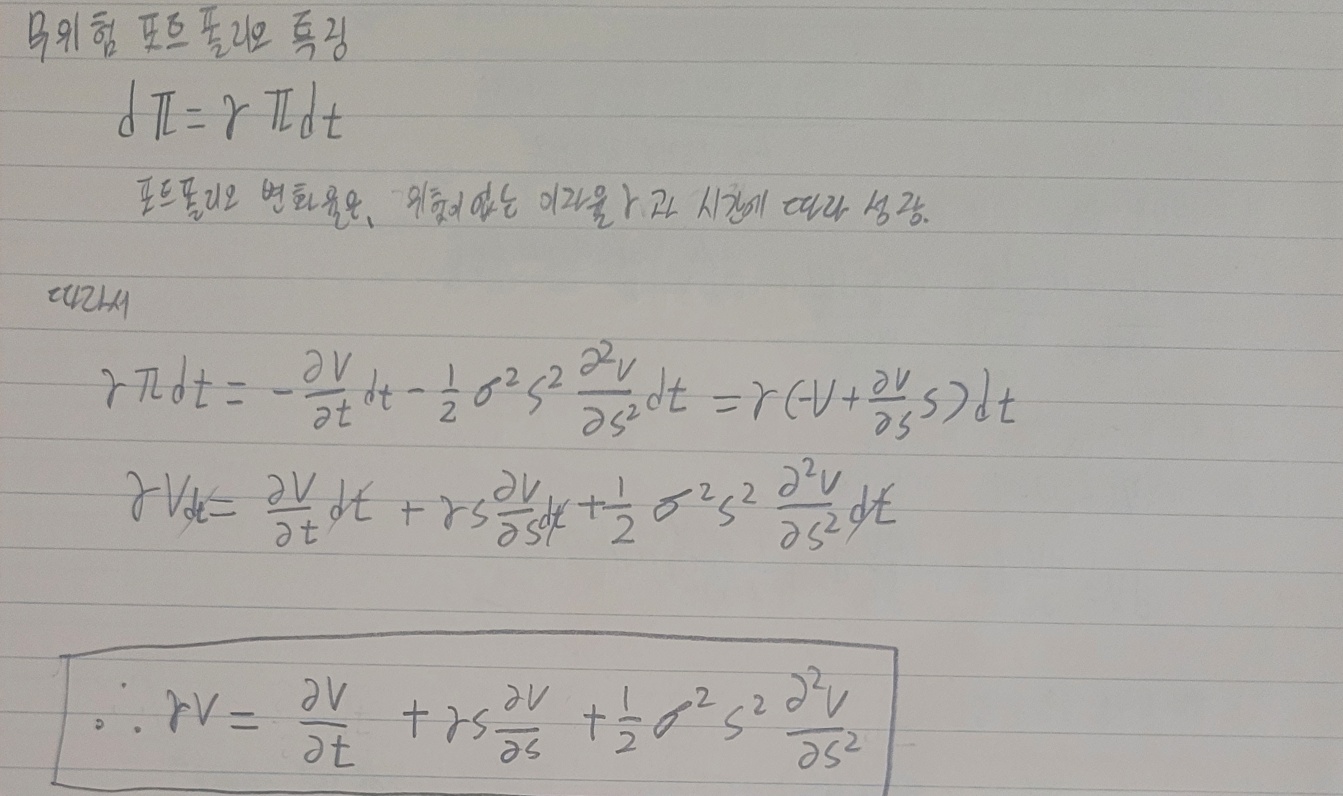 무위험 포트폴리오 특징
dΠ = rΠdt
포트폴리오 변화율은, 위험이 없는 이자율 r과 시간에 따라 성장.
따라서
rΠdt = -∂V/∂t dt - 1/2 σ²S² ∂²V/∂S² dt = r(-V + ∂V/∂S S)dt
rVdt = ∂V/∂t dt + rS ∂V/∂S dt + 1/2 σ²S² ∂²V/∂S² dt
∴ rV = ∂V/∂t + rS ∂V/∂S + 1/2 σ²S² ∂²V/∂S²